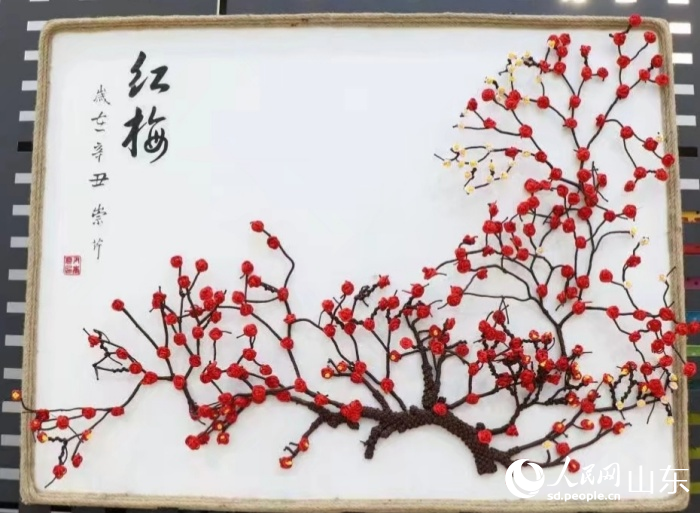 红梅
岁在辛丑
人民网 山东
sd.people.cn